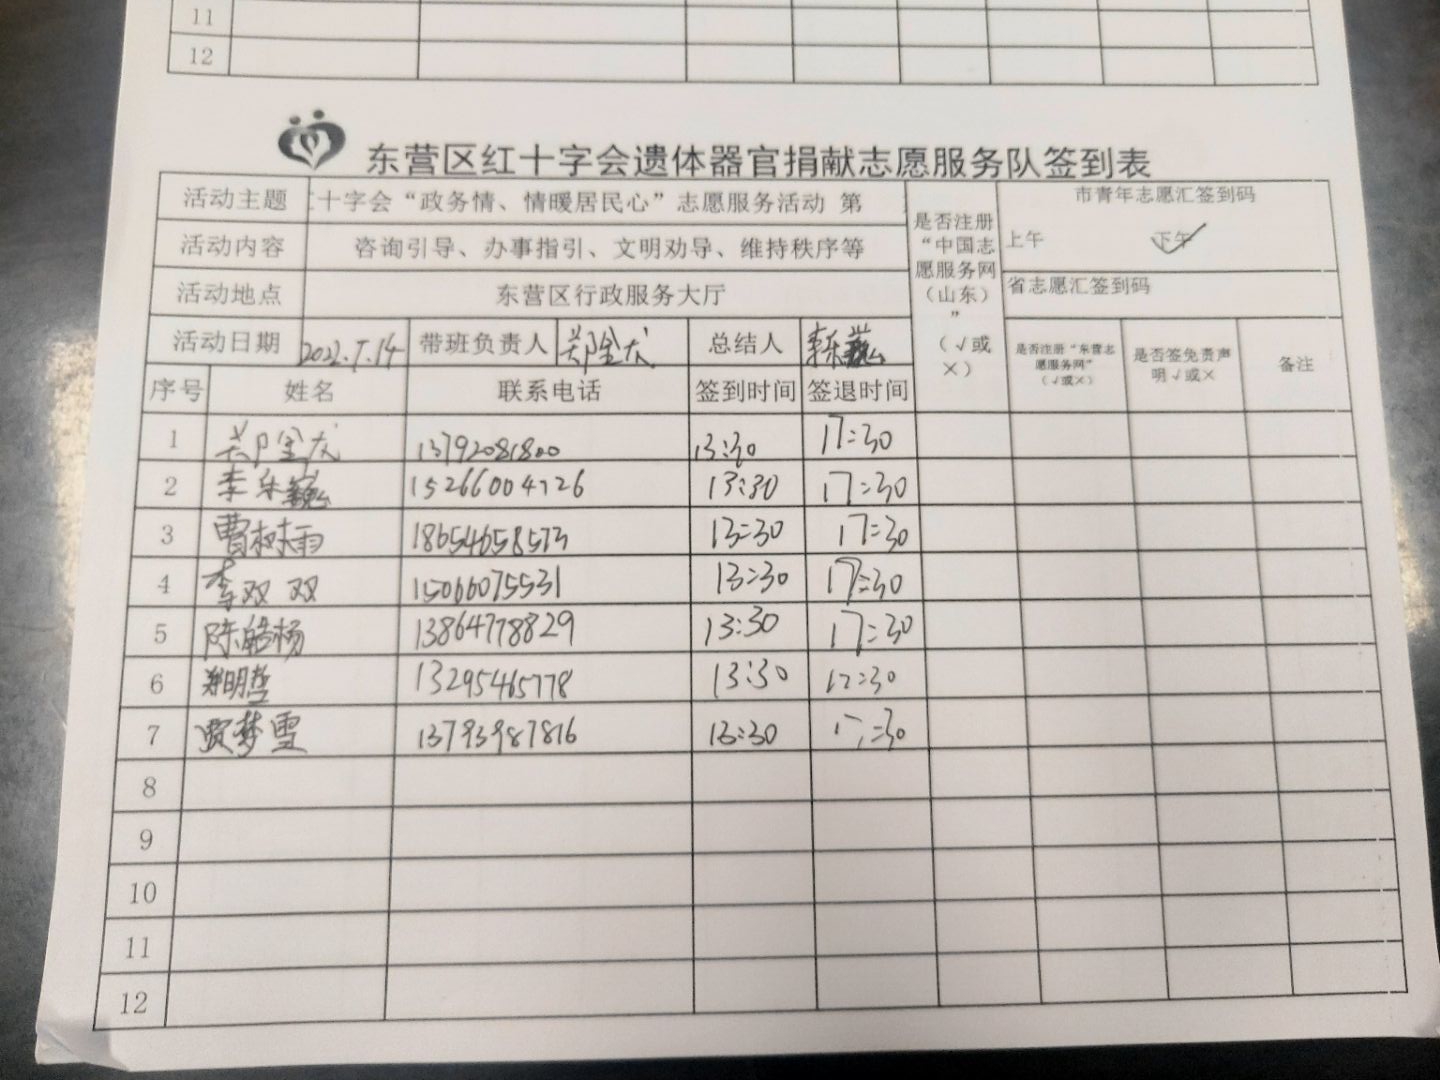 11
12
东营区红十字会遗体器官捐献志愿服务队签到表
活动主题 十字会“政务情、情暖居民心”志愿服务活动 第
活动内容 咨询引导、办事指引、文明劝导、维持秩序等
活动地点 东营区行政服务大厅
是否注册“中国志愿服务网（山东）”（√或×）
市青年志愿汇签到码
上午 下午 √
省志愿汇签到码
活动日期 2022.7.14 带班负责人 郑金龙 总结人 李乐巍
是否注册“东营志愿服务网”（√或×） 是否签免责声明√或× 备注
序号 姓名 联系电话 签到时间 签退时间
1 郑金龙 13792081800 13:30 17:30
2 李乐巍 15266004726 13:30 17:30
3 曹树雨 18654658573 13:30 17:30
4 李双双 15066075531 13:30 17:30
5 陈皓杨 13864778829 13:30 17:30
6 郑明哲 13295465778 13:30 17:30
7 贾梦雪 13793987816 13:30 17:30
8
9
10
11
12